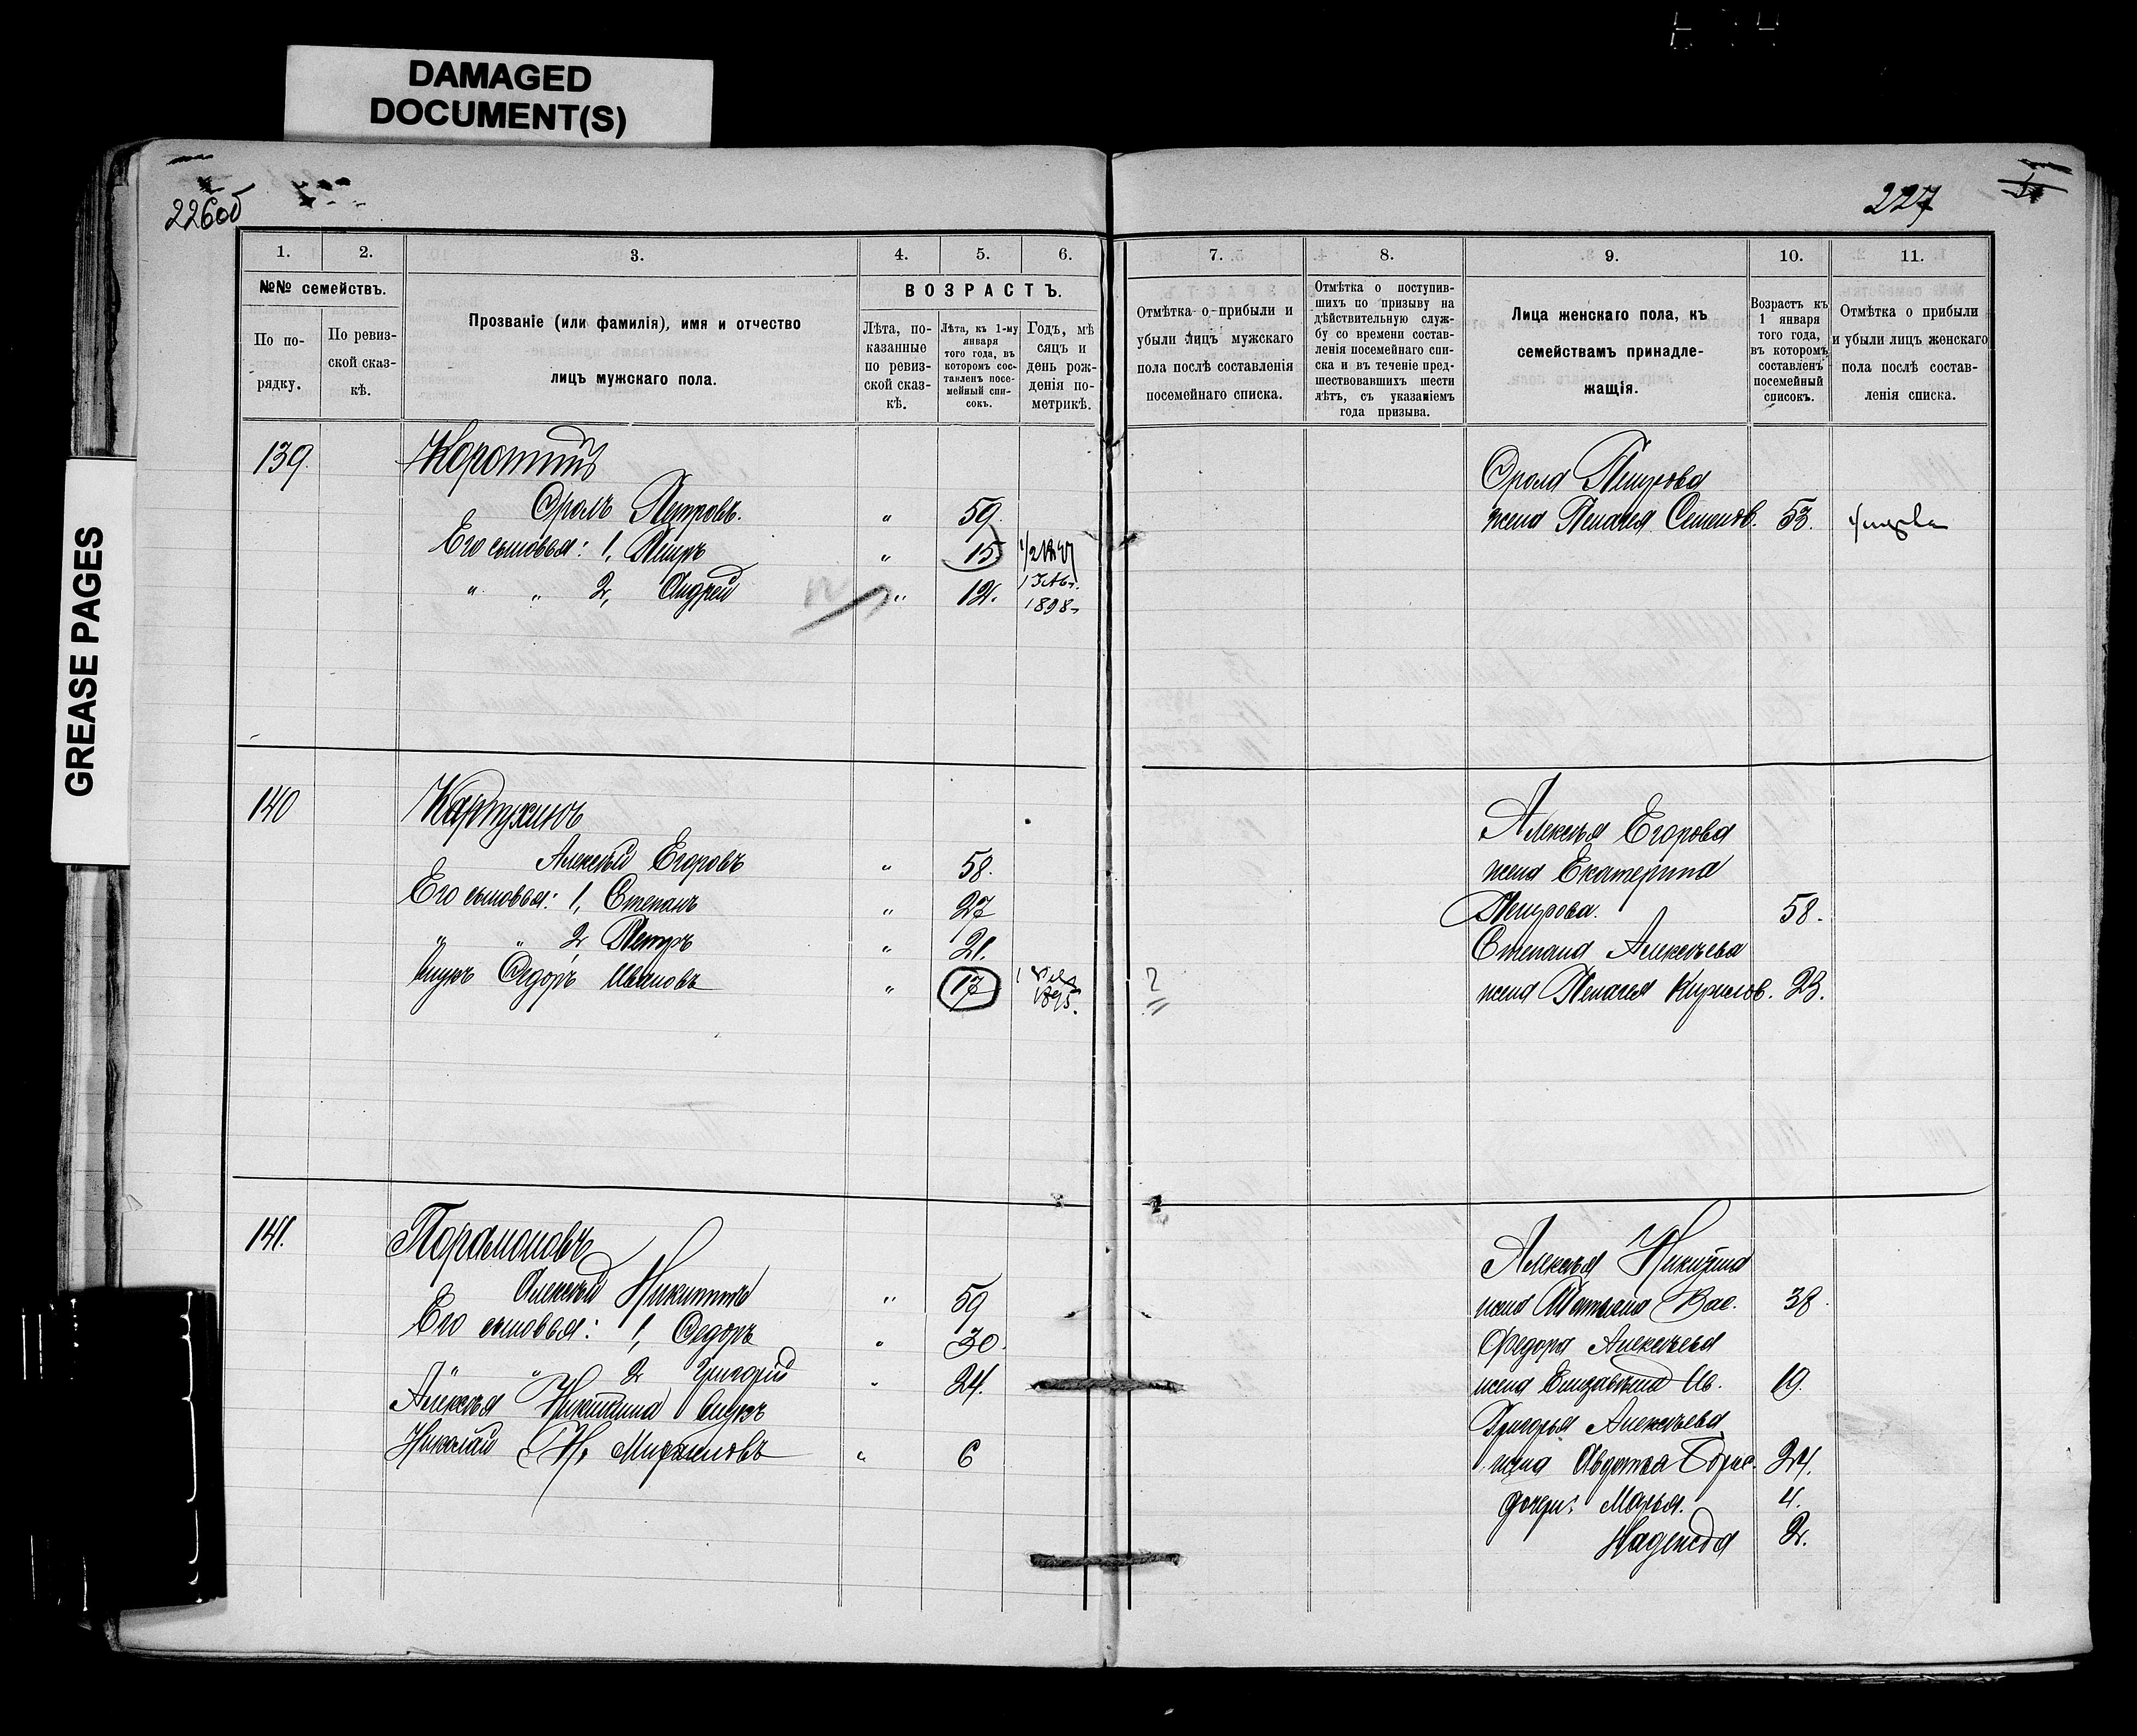 DAMAGED
DOCUMENT(S)
GREASE PAGES
226об
227
1. 2. 3. 4. 5. 6.
№№ семействъ.
По по-
рядку.
По ревиз-
ской сказ-
кѣ.
Прозваніе (или фамилія), имя и отчество
лицъ мужскаго пола.
ВОЗРАСТЪ.
Лѣта, по-
казанные
по ревиз-
ской сказ-
кѣ.
Лѣта, къ 1-му
января
того года, въ
которомъ сос-
тавленъ посе-
мейный спи-
сокъ.
Годъ, мѣ
сяцъ и
день рож-
денія по-
метрикѣ.
139.
Ѳролъ Петровъ. " 59.
Его сыновья: 1, Петръ " 15
" " 2, Андрей " 12. 1898
140 Картухинъ
Алексѣй Егоровъ " 58.
Его сыновья: 1, Степанъ " 27
" " 2, Петръ " 21.
внукъ Ѳедоръ Ивановъ " 17 1895.
141. Парамоновъ
Алексѣй Никитинъ " 59
Его сыновья: 1, Ѳедоръ " 30.
" " 2 Григорій " 24.
Алексѣя Никитина внукъ
Николай " 6
7. 8. 9. 10. 11.
Отмѣтка о прибыли и
убыли лицъ мужскаго
пола послѣ составленія
посемейнаго списка.
Отмѣтка о поступив-
шихъ по призыву на
дѣйствительную служ-
бу со времени состав-
ленія посемейнаго спи-
ска и въ теченіе пред-
шествовавшихъ шести
лѣтъ, съ указаніемъ
года призыва.
Лица женскаго пола, къ
семействамъ принадле-
жащія.
Возрастъ къ
1 января
того года,
въ которомъ
составленъ
посемейный
списокъ.
Отмѣтка о прибыли
и убыли лицъ женскаго
пола послѣ состав-
ленія списка.
Ѳрола Петрова
жена Пелагея Семенов. 53. умерла
Алексѣя Егорова
жена Екатерина
Петрова. 58.
Степана Алексѣева
? жена Пелагея Кирилов. 23.
Алексѣя Никитина
жена Татьяна Вас. 38.
Ѳедора Алексѣева
жена Елизавета Ив. 19.
Григорья Алексѣева
жена Авдотья Борис. 24.
дочери: Марья. 4.
Надежда 2.